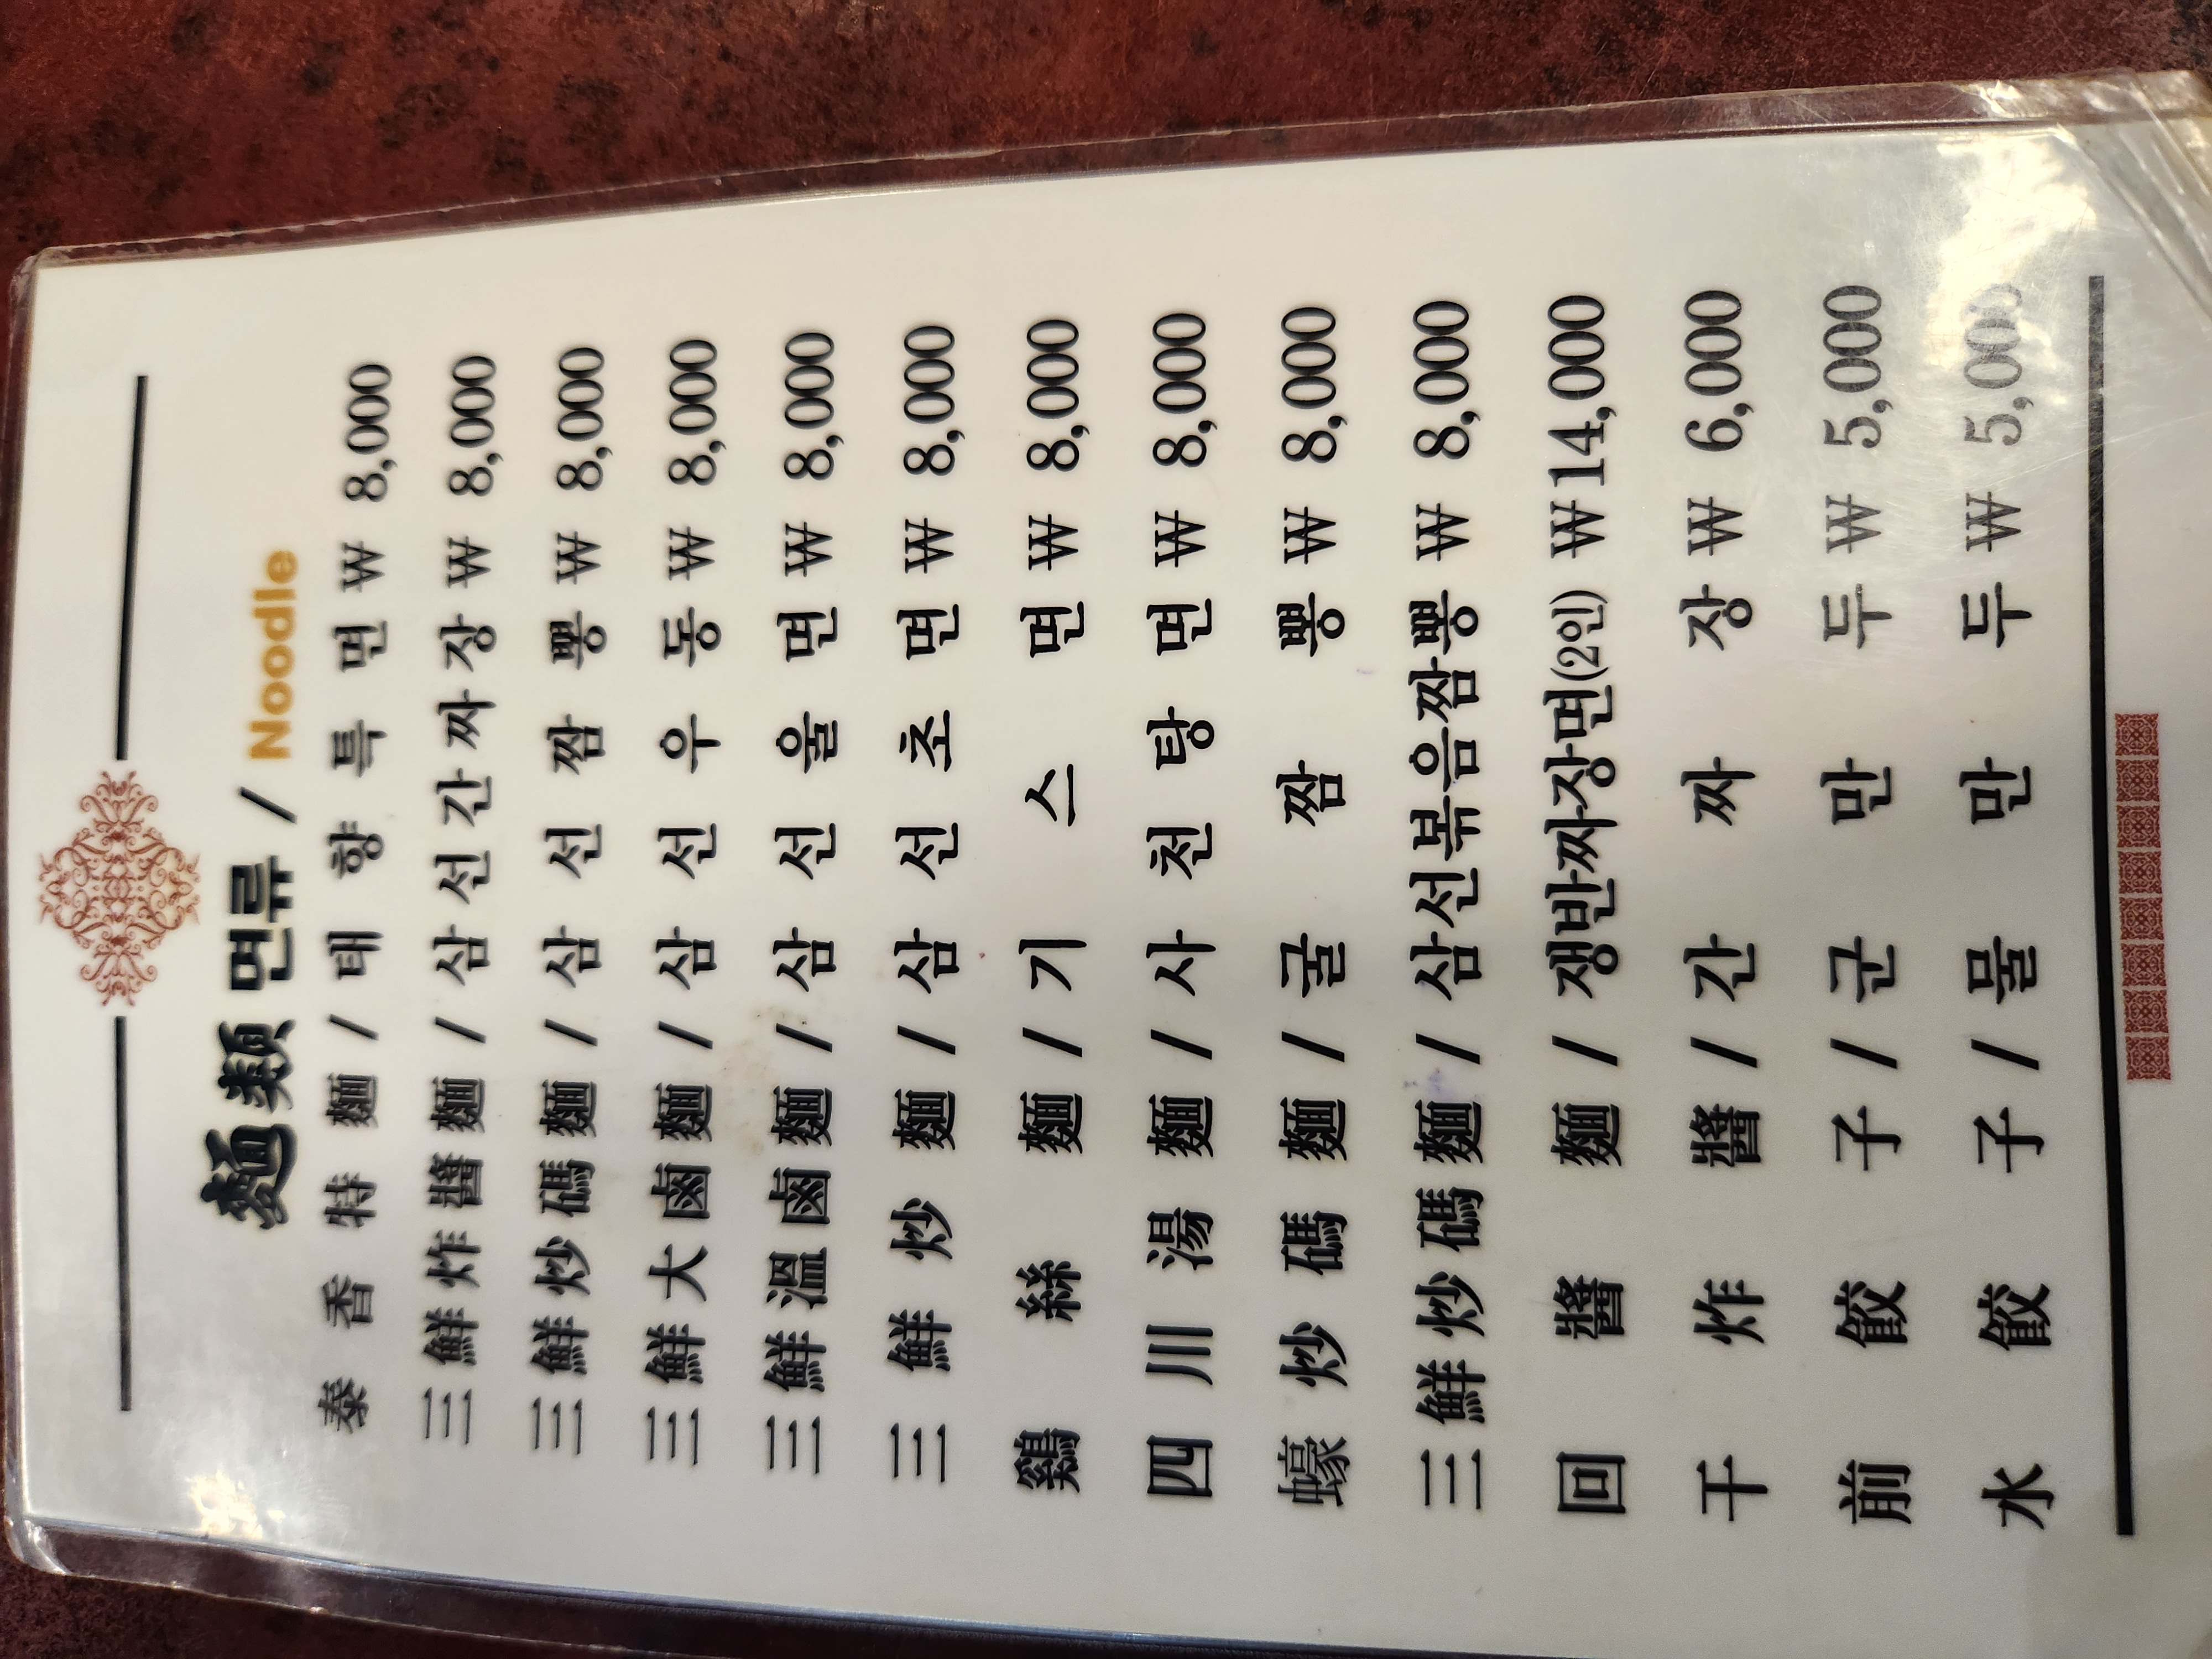 麵類 면류 / Noodle
泰香特麵 / 태향특면 ₩ 8,000
三鮮炸醬麵 / 삼선간짜장 ₩ 8,000
三鮮炒碼麵 / 삼선짬뽕 ₩ 8,000
三鮮大鹵麵 / 삼선우동 ₩ 8,000
三鮮溫鹵麵 / 삼선울면 ₩ 8,000
三鮮炒麵 / 삼선초면 ₩ 8,000
鷄絲麵 / 기스면 ₩ 8,000
四川湯麵 / 사천탕면 ₩ 8,000
蠔炒碼麵 / 굴짬뽕 ₩ 8,000
三鮮炒碼麵 / 삼선볶음짬뽕 ₩ 8,000
回醬麵 / 쟁반짜장면(2인) ₩ 14,000
干炸醬 / 간짜장 ₩ 6,000
前餃子 / 군만두 ₩ 5,000
水餃子 / 물만두 ₩ 5,000